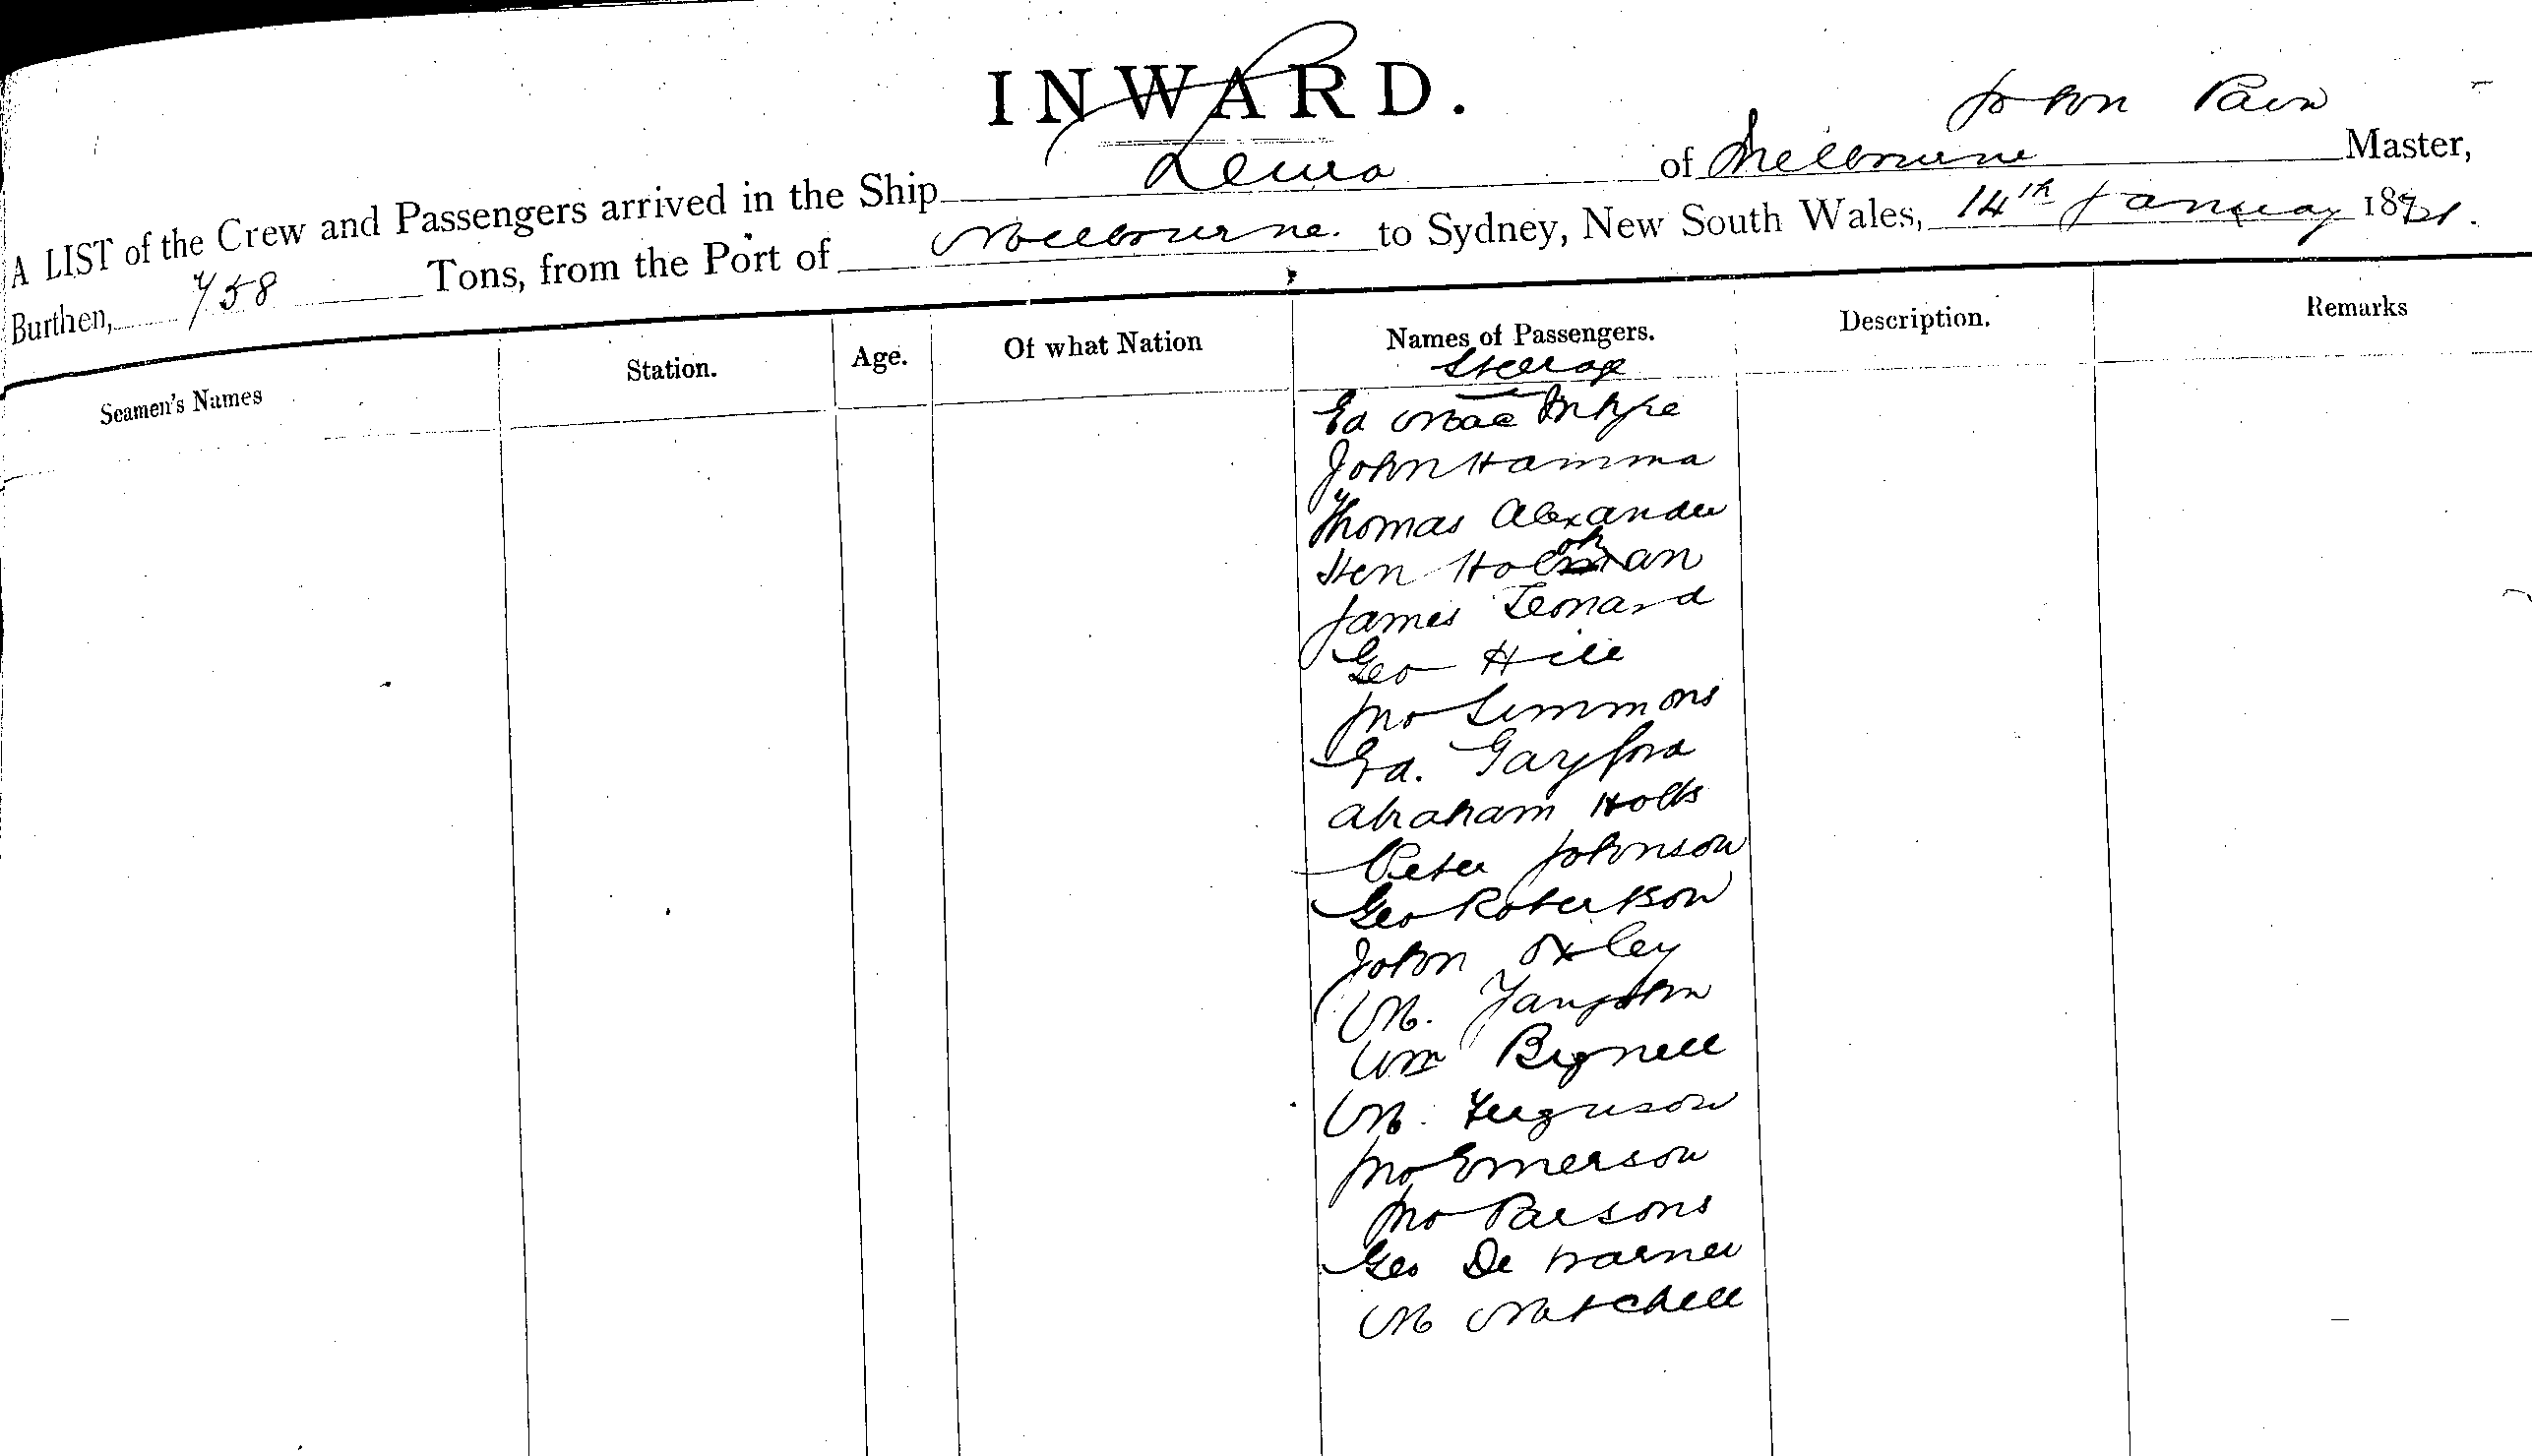 INWARD.
John Pain
A LIST of the Crew and Passengers arrived in the Ship Leura of Melbourne Master,
Burthen, 758 Tons, from the Port of Melbourne to Sydney, New South Wales, 14th January 18
Seamen's Names Station. Age. Of what Nation Names of Passengers. Description. Remarks
Steerage
Ed MacIntyre
John Hamma
Thomas Alexander
Hen
James Leonard
Geo Hill
Jno Simmons
Ed. Gayford
Abraham Holts
Peter Johnson
Geo Robertson
John Oxley
M.
Wm Bignell
M. Ferguson
Jno Emerson
Jno Parsons
Geo De
M Mitchell